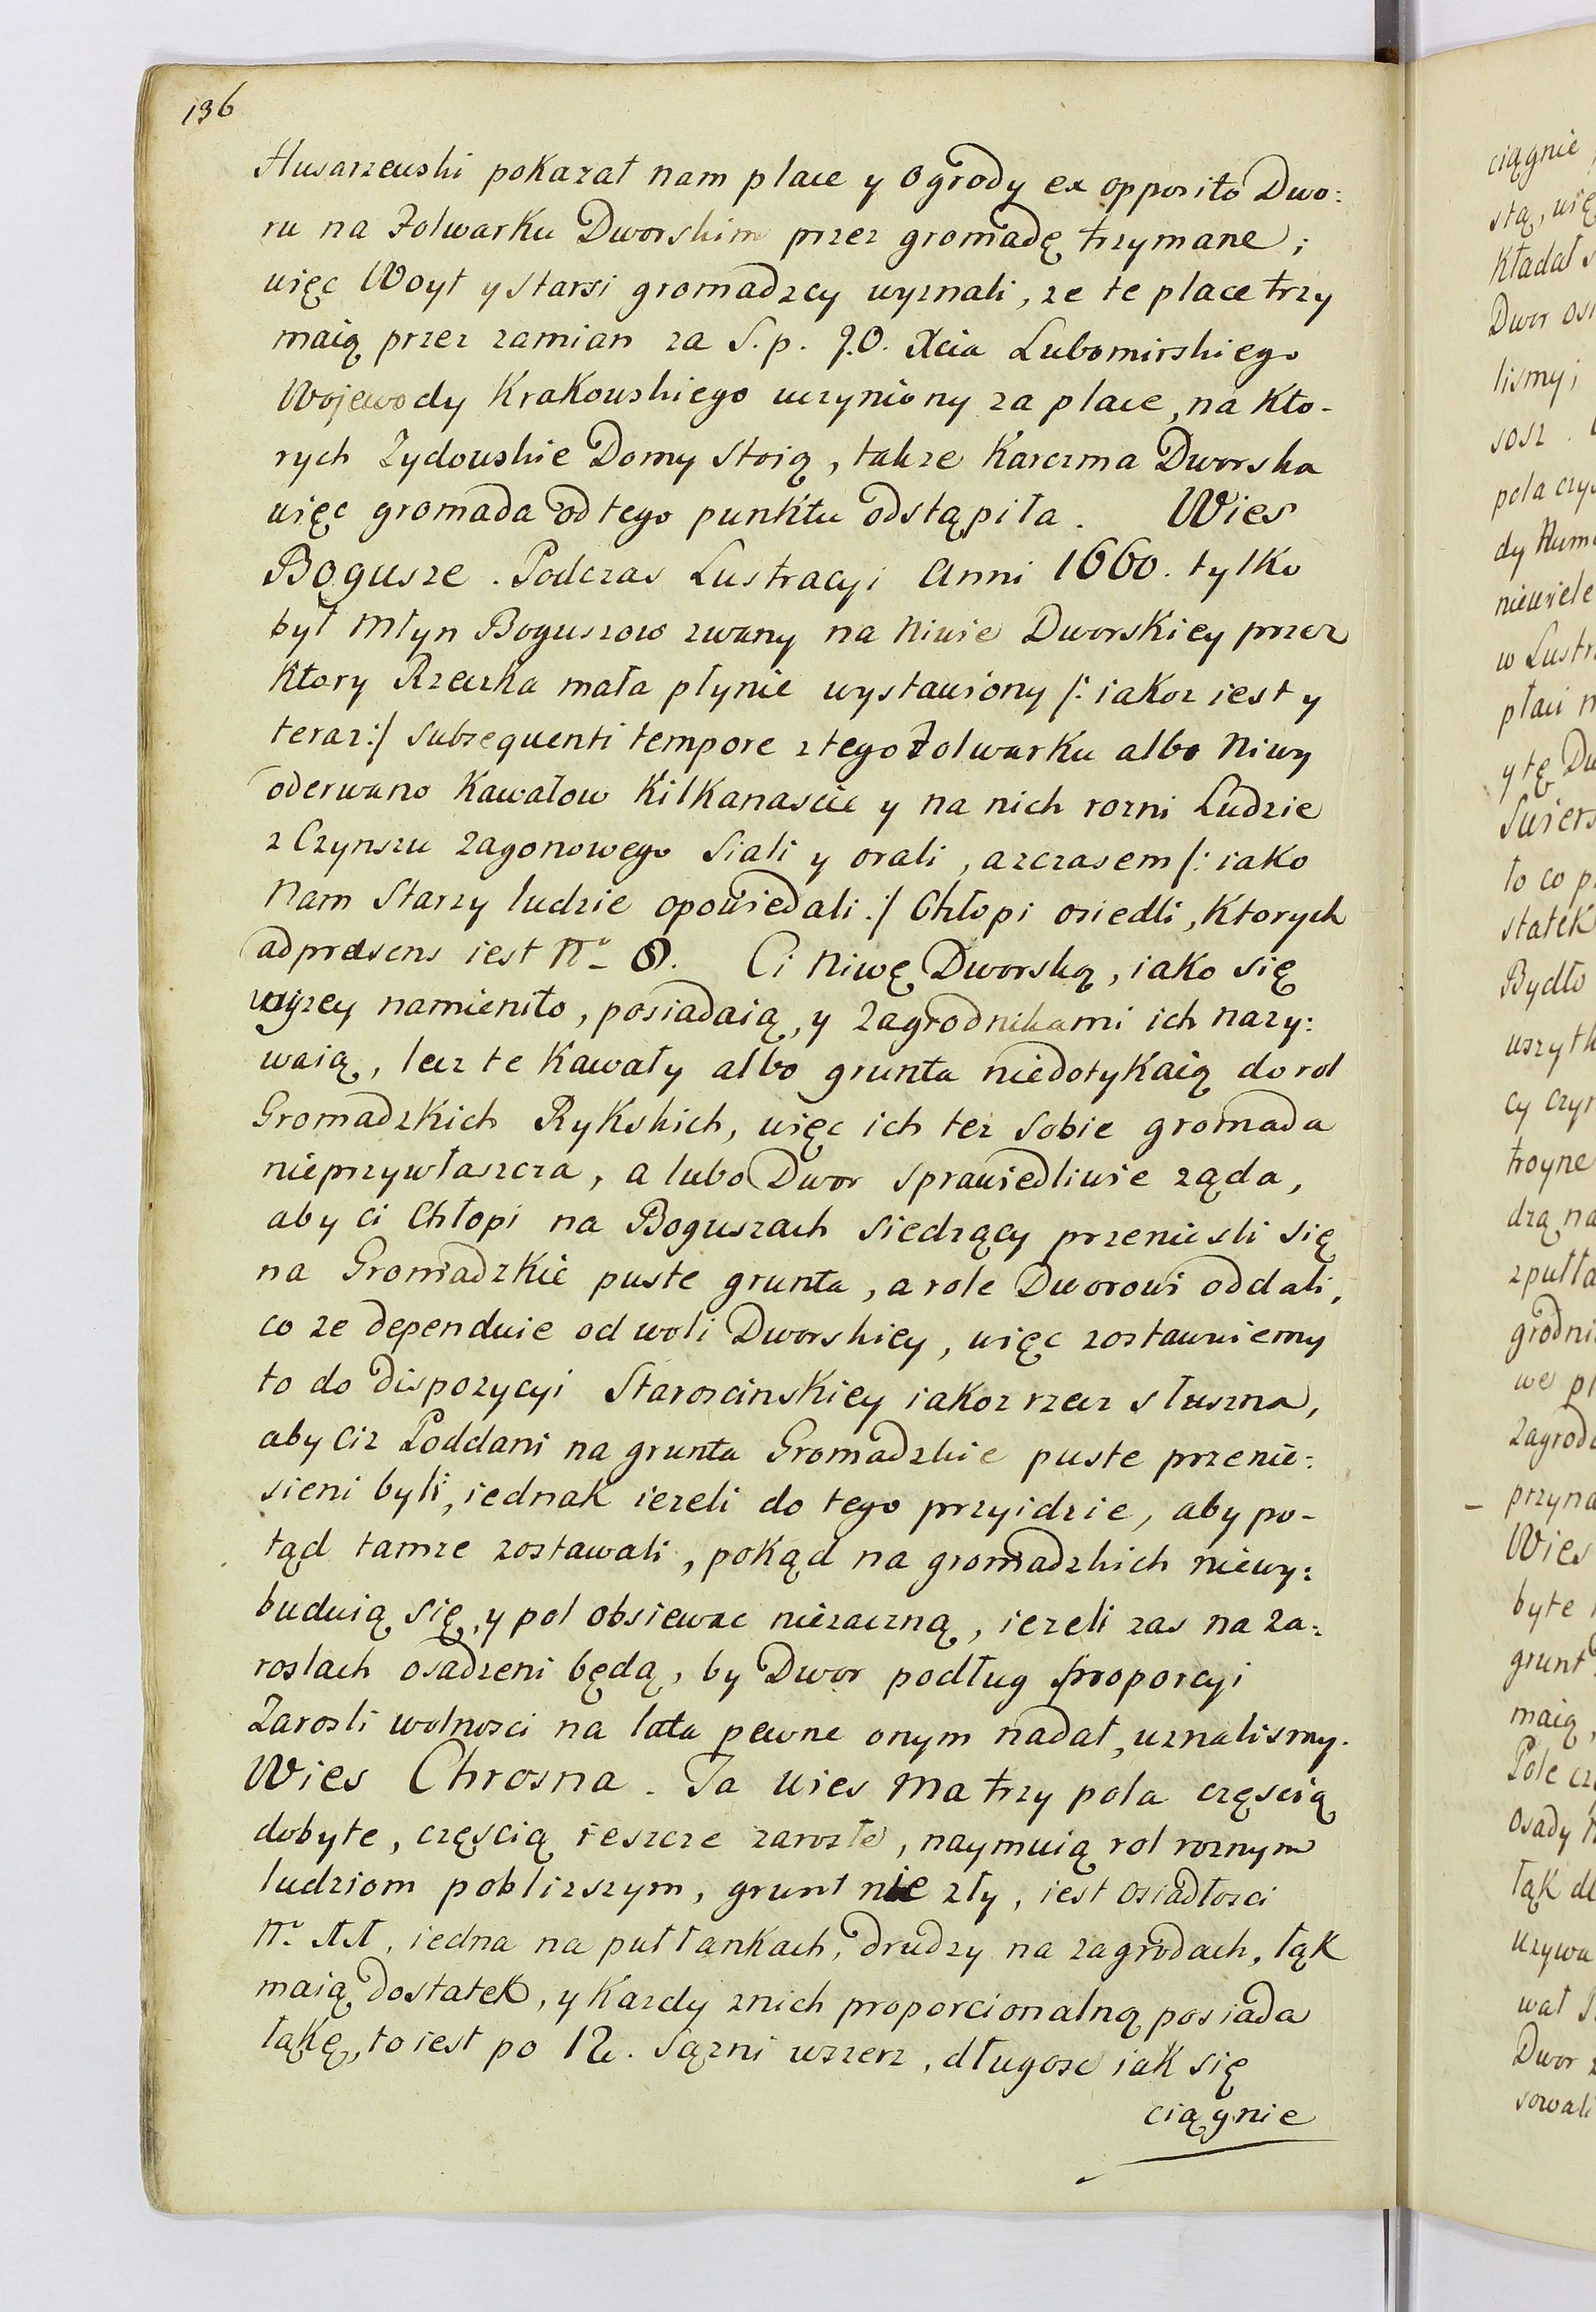 136
Husarzewski pokazał nam place y Ogrody ex opposito Dwo:
ru na Folwarku Dworskim przez gromadę trzymane;
więc Woyt y starsi gromadzcy wyznali, ze te place trzy
maią przez zamian za S. p. J.O. Xcia Lubomirskiego
Wojewody Krakowskiego uczyniony za place, na kto-
rych Zydowskie Domy stoią, takze Karczma Dworska
więc gromada od tego punktu odstąpiła. Wies
Bogusze. Podczas Lustracyi Anni 1660. tylko
był Młyn Boguszow zwany na Niwie Dworskiey przez
ktory Rzeczka mała płynie wystawiony /: iakoz iest y
teraz:/ subsequenti tempore z tego Folwarku albo Niwy
oderwano Kawałow Kilkanascie y na nich rozni Ludzie
z Czynszu zagonowego siali y orali, a z czasem /: iako
Nam Starzy ludzie opowiedali :/ Chłopi osiedli, Ktorych
ad praesens iest Nº 8. Ci Niwę Dworską, iako się
wyzey namieniło, posiadaią, y Zagrodnikami ich nazy:
waią, lecz te Kawały albo grunta niedotykaią do rol
Gromadzkich Rykskich, więc ich tez sobie gromada
nieprzywłaszcza, a lubo Dwor sprawiedliwie ząda,
aby ci Chłopi na Boguszach siedzący przeniesli się
na Gromadzkie puste grunta, a role Dworowi oddali,
co ze dependuie od woli Dworskiey, więc zostawuiemy
to do dispozycyi Staroscinskiey iakoz rzecz słuszna,
aby ciz Poddani na grunta Gromadzkie puste przenie:
sieni byli, iednak iezeli do tego przyidzie, aby po-
tąd tamze zostawali, pokąd na gromadzkich niewy:
buduią się, y pol obsiewac niezaczną, iezeli zas na Za:
roslach osadzeni będą, by Dwor podług proporcyi
Zarosli wolnosci na lata pewne onym nadał, uznalismy.
Wies Chrosna. Ta wies ma trzy pola częscią
dobyte, częscią ieszcze zarosłe, naymuią rol roznym
ludziom poblizszym, grunt nie zły, iest osiadłosci
Nº 11, iedna na pułłankach, drudzy na zagrodach, łąk
maią dostatek, y Kazdy z nich proporcionalną posiada
łąkę, to iest po 12. sązni wszerz, długosc iak się
ciągnie
ciągnie
stą, wię
Kładał s
lismy;
sosz.
niewiele
w Lustr
y tę Dw
to co p
statek
Bydło
cy czyn
troyne
dzą na
grodni
we pł
zagrod
przyna
Wies
byte
grunt
maią,
Pole cz
osady
łąk d
uzywa
Dwor z
sowali